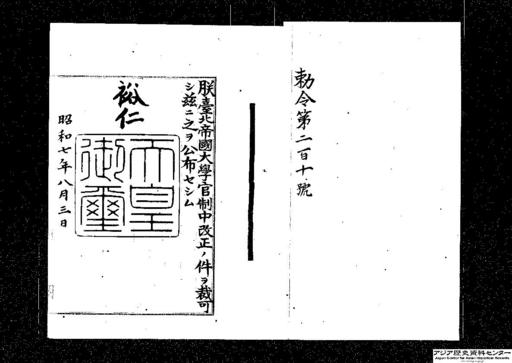 勅令第二百十號
朕臺北帝國大學官制中改正ノ件ヲ裁可
シ茲ニ之ヲ公布セシム
裕仁
天皇
御璽
昭和七年八月三日
アジア歴史資料センター
Japan Center for Asian Historical Records